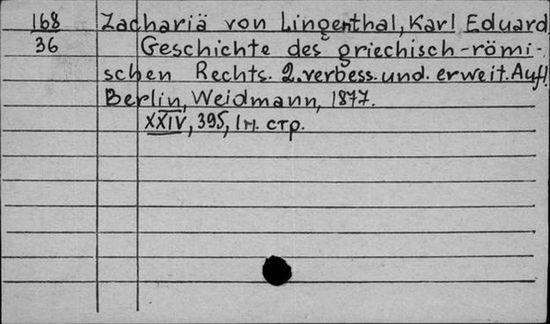 168 Zachariä von Lingenthal, Karl Eduard
36 Geschichte des griechisch-römi-
schen Rechts. 2. verbess. und. erweit. Aufl.
Berlin, Weidmann, 1877.
XXIV, 395, 1 н. стр.